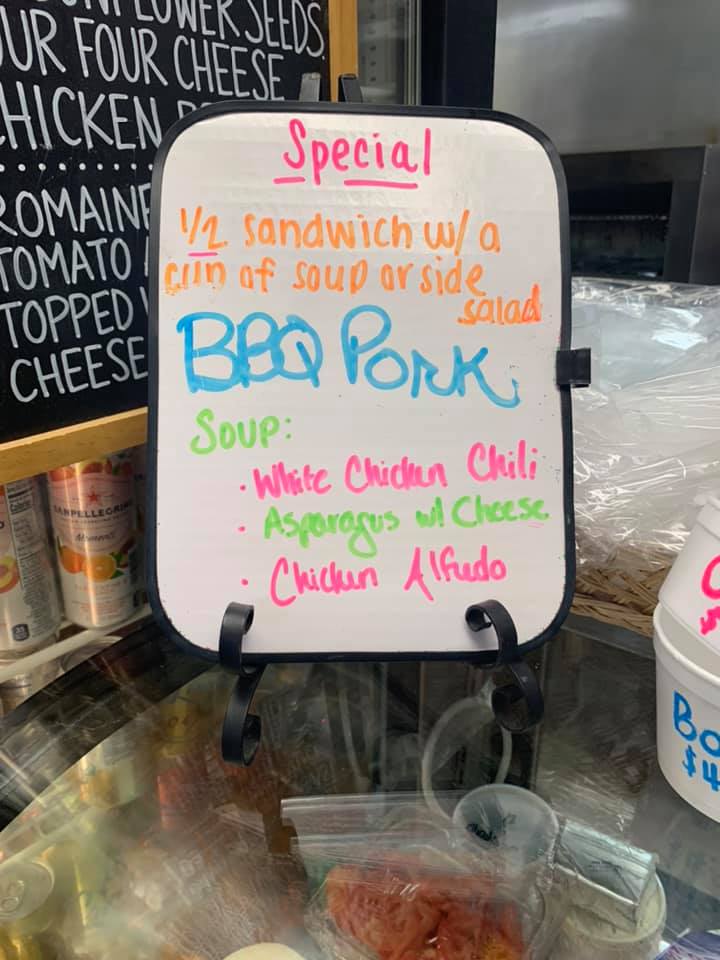 SEEDS
FOUR CHEESE
TOMATO
TOPPED
CHEESE
Special
1/2 sandwich w/ a
cup of soup or side
salad
BBQ Pork
Soup:
• White Chicken Chili
• Asparagus w/ Cheese
• Chicken Alfredo
SANPELLEGRINO
$4